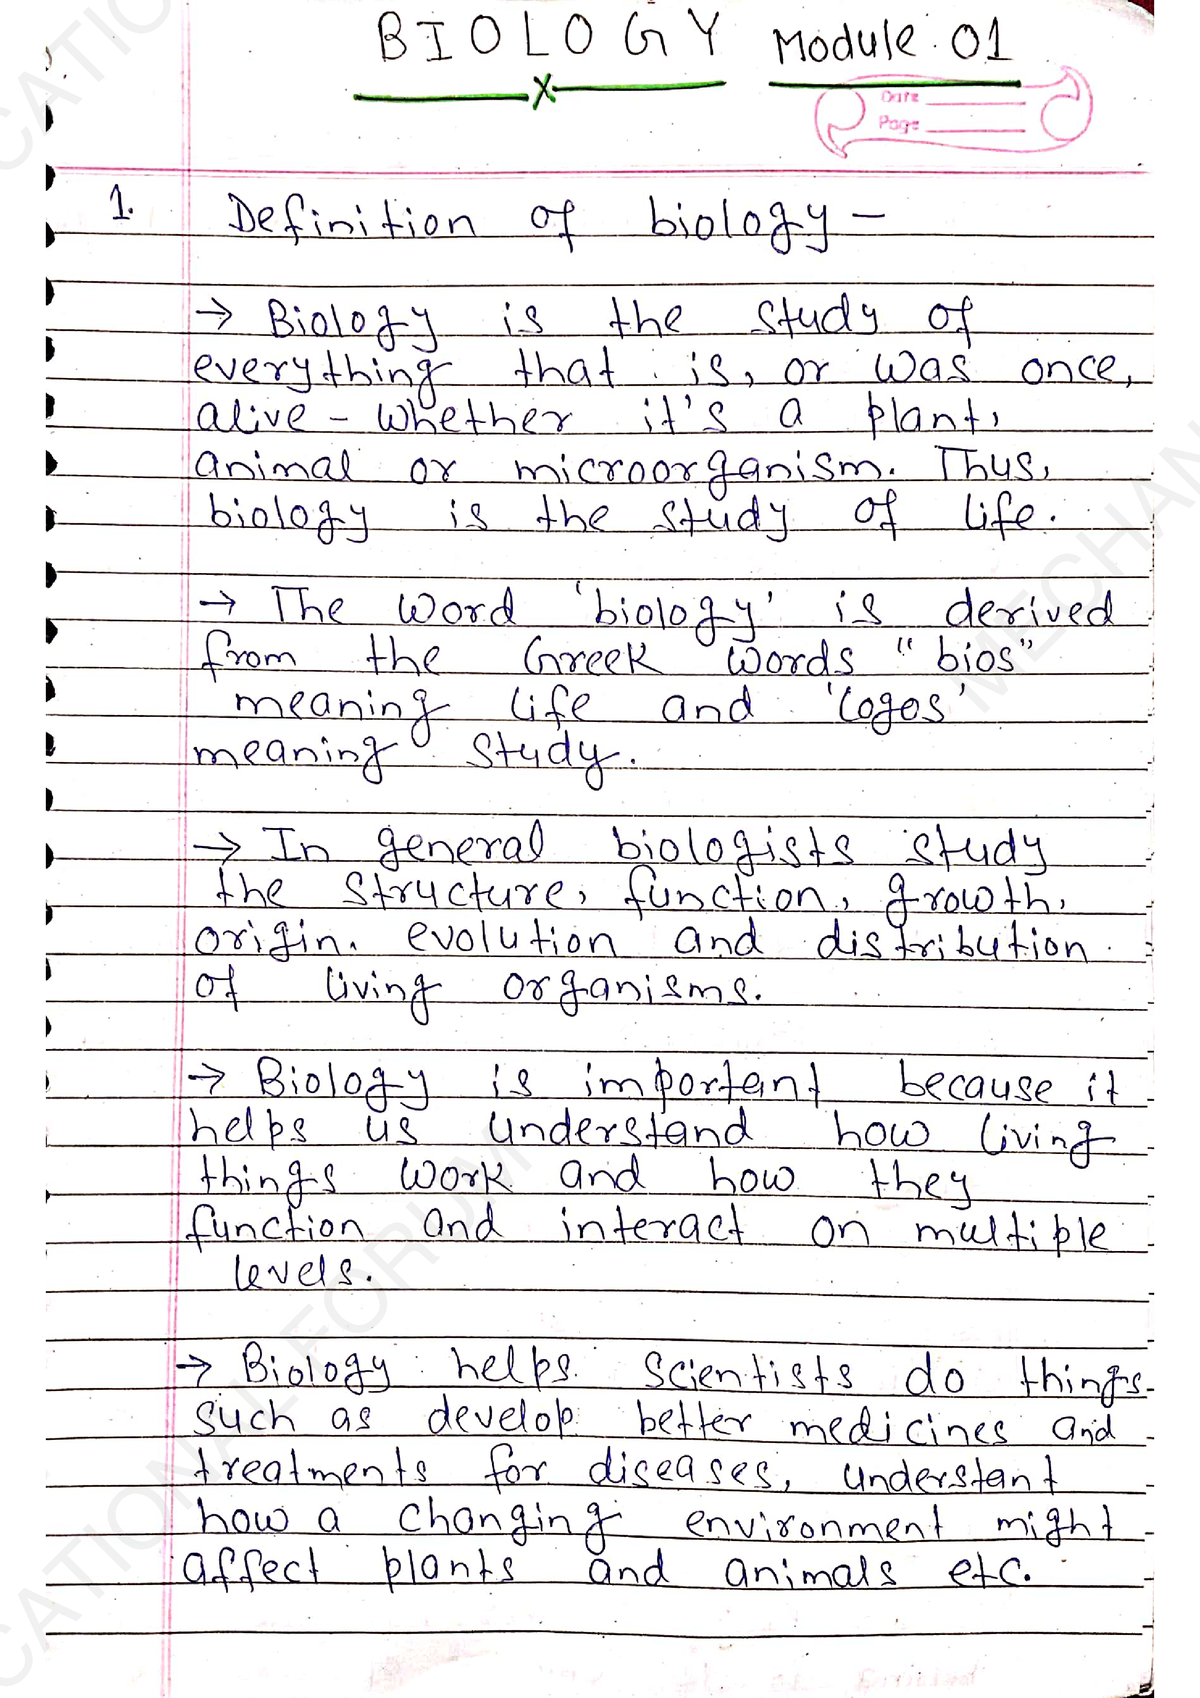 BIOLOGY Module 01
Date
Page
1. Definition of biology -
→ Biology is the study of
everything that is, or was once,
alive - whether it's a plant,
animal or microorganism. Thus,
biology is the study of life.
→ The word 'biology' is derived
from the Greek words "bios"
meaning life and 'logos'
meaning study.
→ In general biologists study
the structure, function, growth,
origin, evolution and distribution
of living organisms.
→ Biology is important because it
helps us understand how living
things work and how they
function and interact on multiple
levels.
→ Biology helps scientists do things
such as develop better medicines and
treatments for diseases, understant
how a changing environment might
affect plants and animals etc.
CATIO
MECHAN
CATIONAL FORUM